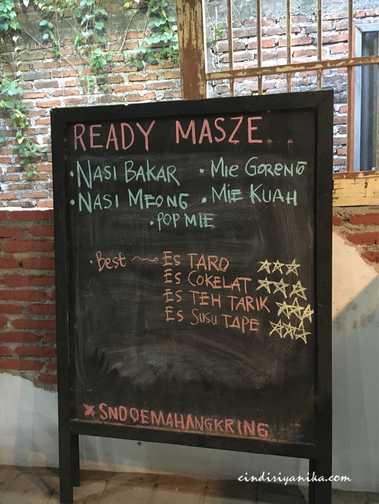 READY MASZE...
• NASI BAKAR • MIE GORENG
• NASI MEONG • MIE KUAH
• POP MIE
• Best ES TARO
ES COKELAT
ES TEH TARIK
ES SUSU TAPE
SNDOEMAHANGKRING
cindiriyanika.com